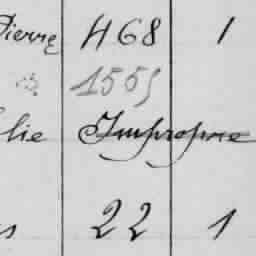 Pierre 468 1
1551
lie Impropre
22 1